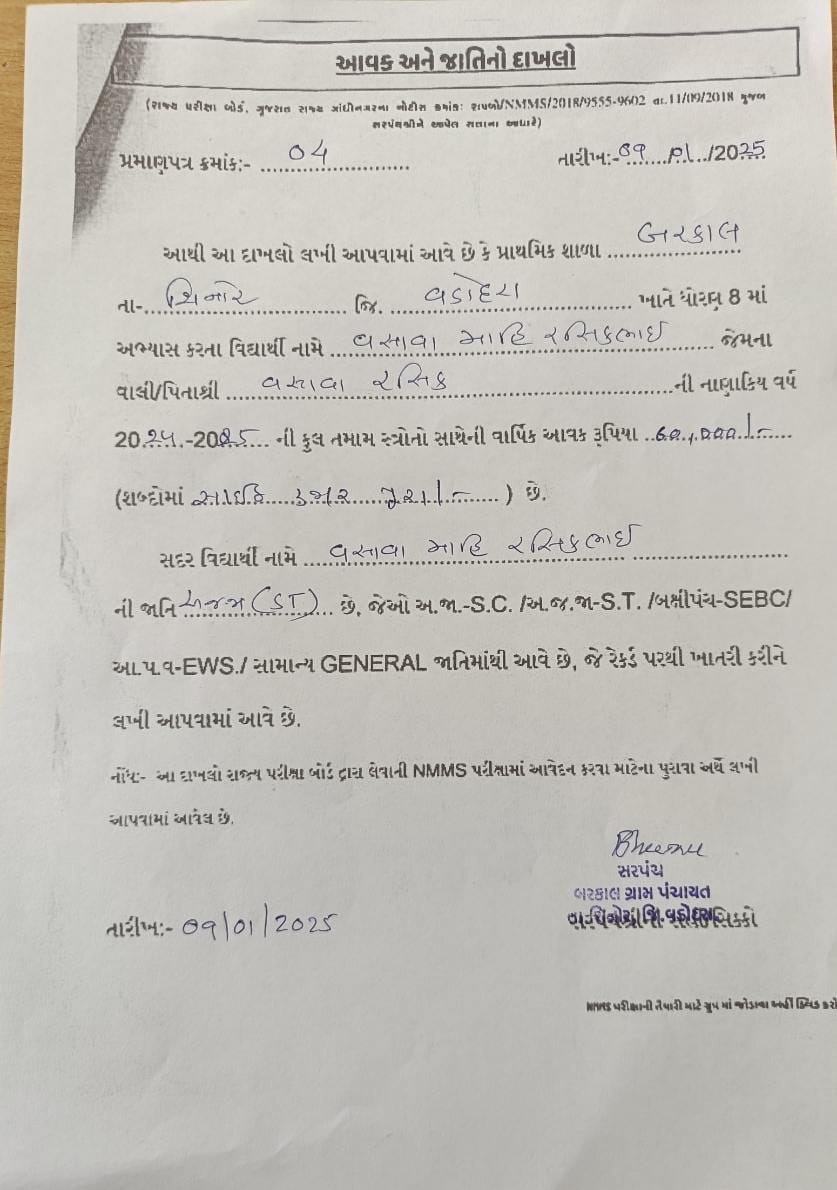 આવક અને જાતિનો દાખલો
(રાજ્ય પરીક્ષા બોર્ડ, ગુજરાત રાજ્ય ગાંધીનગરના નોટીસ ક્રમાંક: રાપબો/NMMS/2018/9555-9602 તા.11/09/2018 મુજબ
સરપંચશ્રીને આપેલ સતાના આધારે)
પ્રમાણપત્ર ક્રમાંક:- 04 તારીખ:- 09/01/2025
આથી આ દાખલો લખી આપવામાં આવે છે કે પ્રાથમિક શાળા બરકાલ
તા- શિનોર જિ. વડોદરા ખાતે ધોરણ 8 માં
અભ્યાસ કરતા વિદ્યાર્થી નામે વસાવા માહિ રસિકભાઈ જેમના
વાલી/પિતાશ્રી વસાવા રસિક ની નાણાકિય વર્ષ
2024-2025 ની કુલ તમામ સ્ત્રોતો સાથેની વાર્ષિક આવક રૂપિયા 60,000/-
(શબ્દોમાં સાઈઠ હજાર પુરા/-) છે.
સદર વિદ્યાર્થી નામે વસાવા માહિ રસિકભાઈ
ની જાતિ અજજા (ST) છે, જેઓ અ.જા.-S.C. /અ.જ.જા-S.T. /બક્ષીપંચ-SEBC/
આ.પ.વ-EWS./ સામાન્ય GENERAL જાતિમાંથી આવે છે, જે રેકર્ડ પરથી ખાતરી કરીને
લખી આપવામાં આવે છે.
નોંધ:- આ દાખલો રાજ્ય પરીક્ષા બોર્ડ દ્વારા લેવાની NMMS પરીક્ષામાં આવેદન કરવા માટેના પુરાવા અર્થે લખી
આપવામાં આવેલ છે.
સરપંચ
બરકાલ ગ્રામ પંચાયત
તા.શિનોર જિ.વડોદરા સિક્કો
તારીખ:- 09/01/2025
NMMS પરીક્ષાની તૈયારી માટે ગ્રુપ માં જોડાવા અહીં ક્લિક કરો